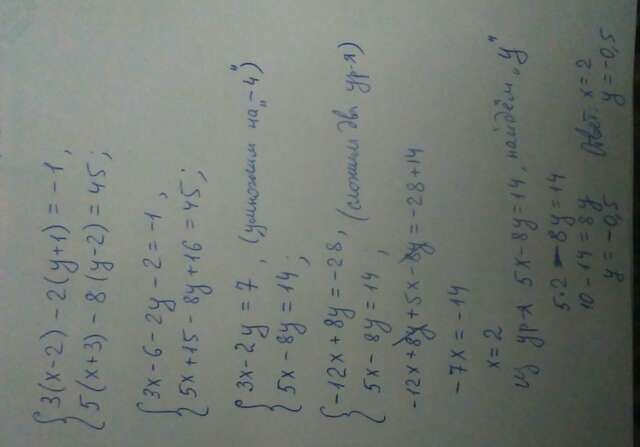 {3(x-2)-2(y+1)=-1,
5(x+3)-8(y-2)=45;
{3x-6-2y-2=-1,
5x+15-8y+16=45;
{3x-2y=7, (умножим на „-4")
5x-8y=14;
{-12x+8y=-28, (сложим два ур-я)
5x-8y=14;
-12x+8y+5x-8y=-28+14
-7x=-14
x=2
из ур-я 5x-8y=14, найдём „y"
5·2-8y=14
10-14=8y
y=-0,5
Ответ: x=2
y=-0,5